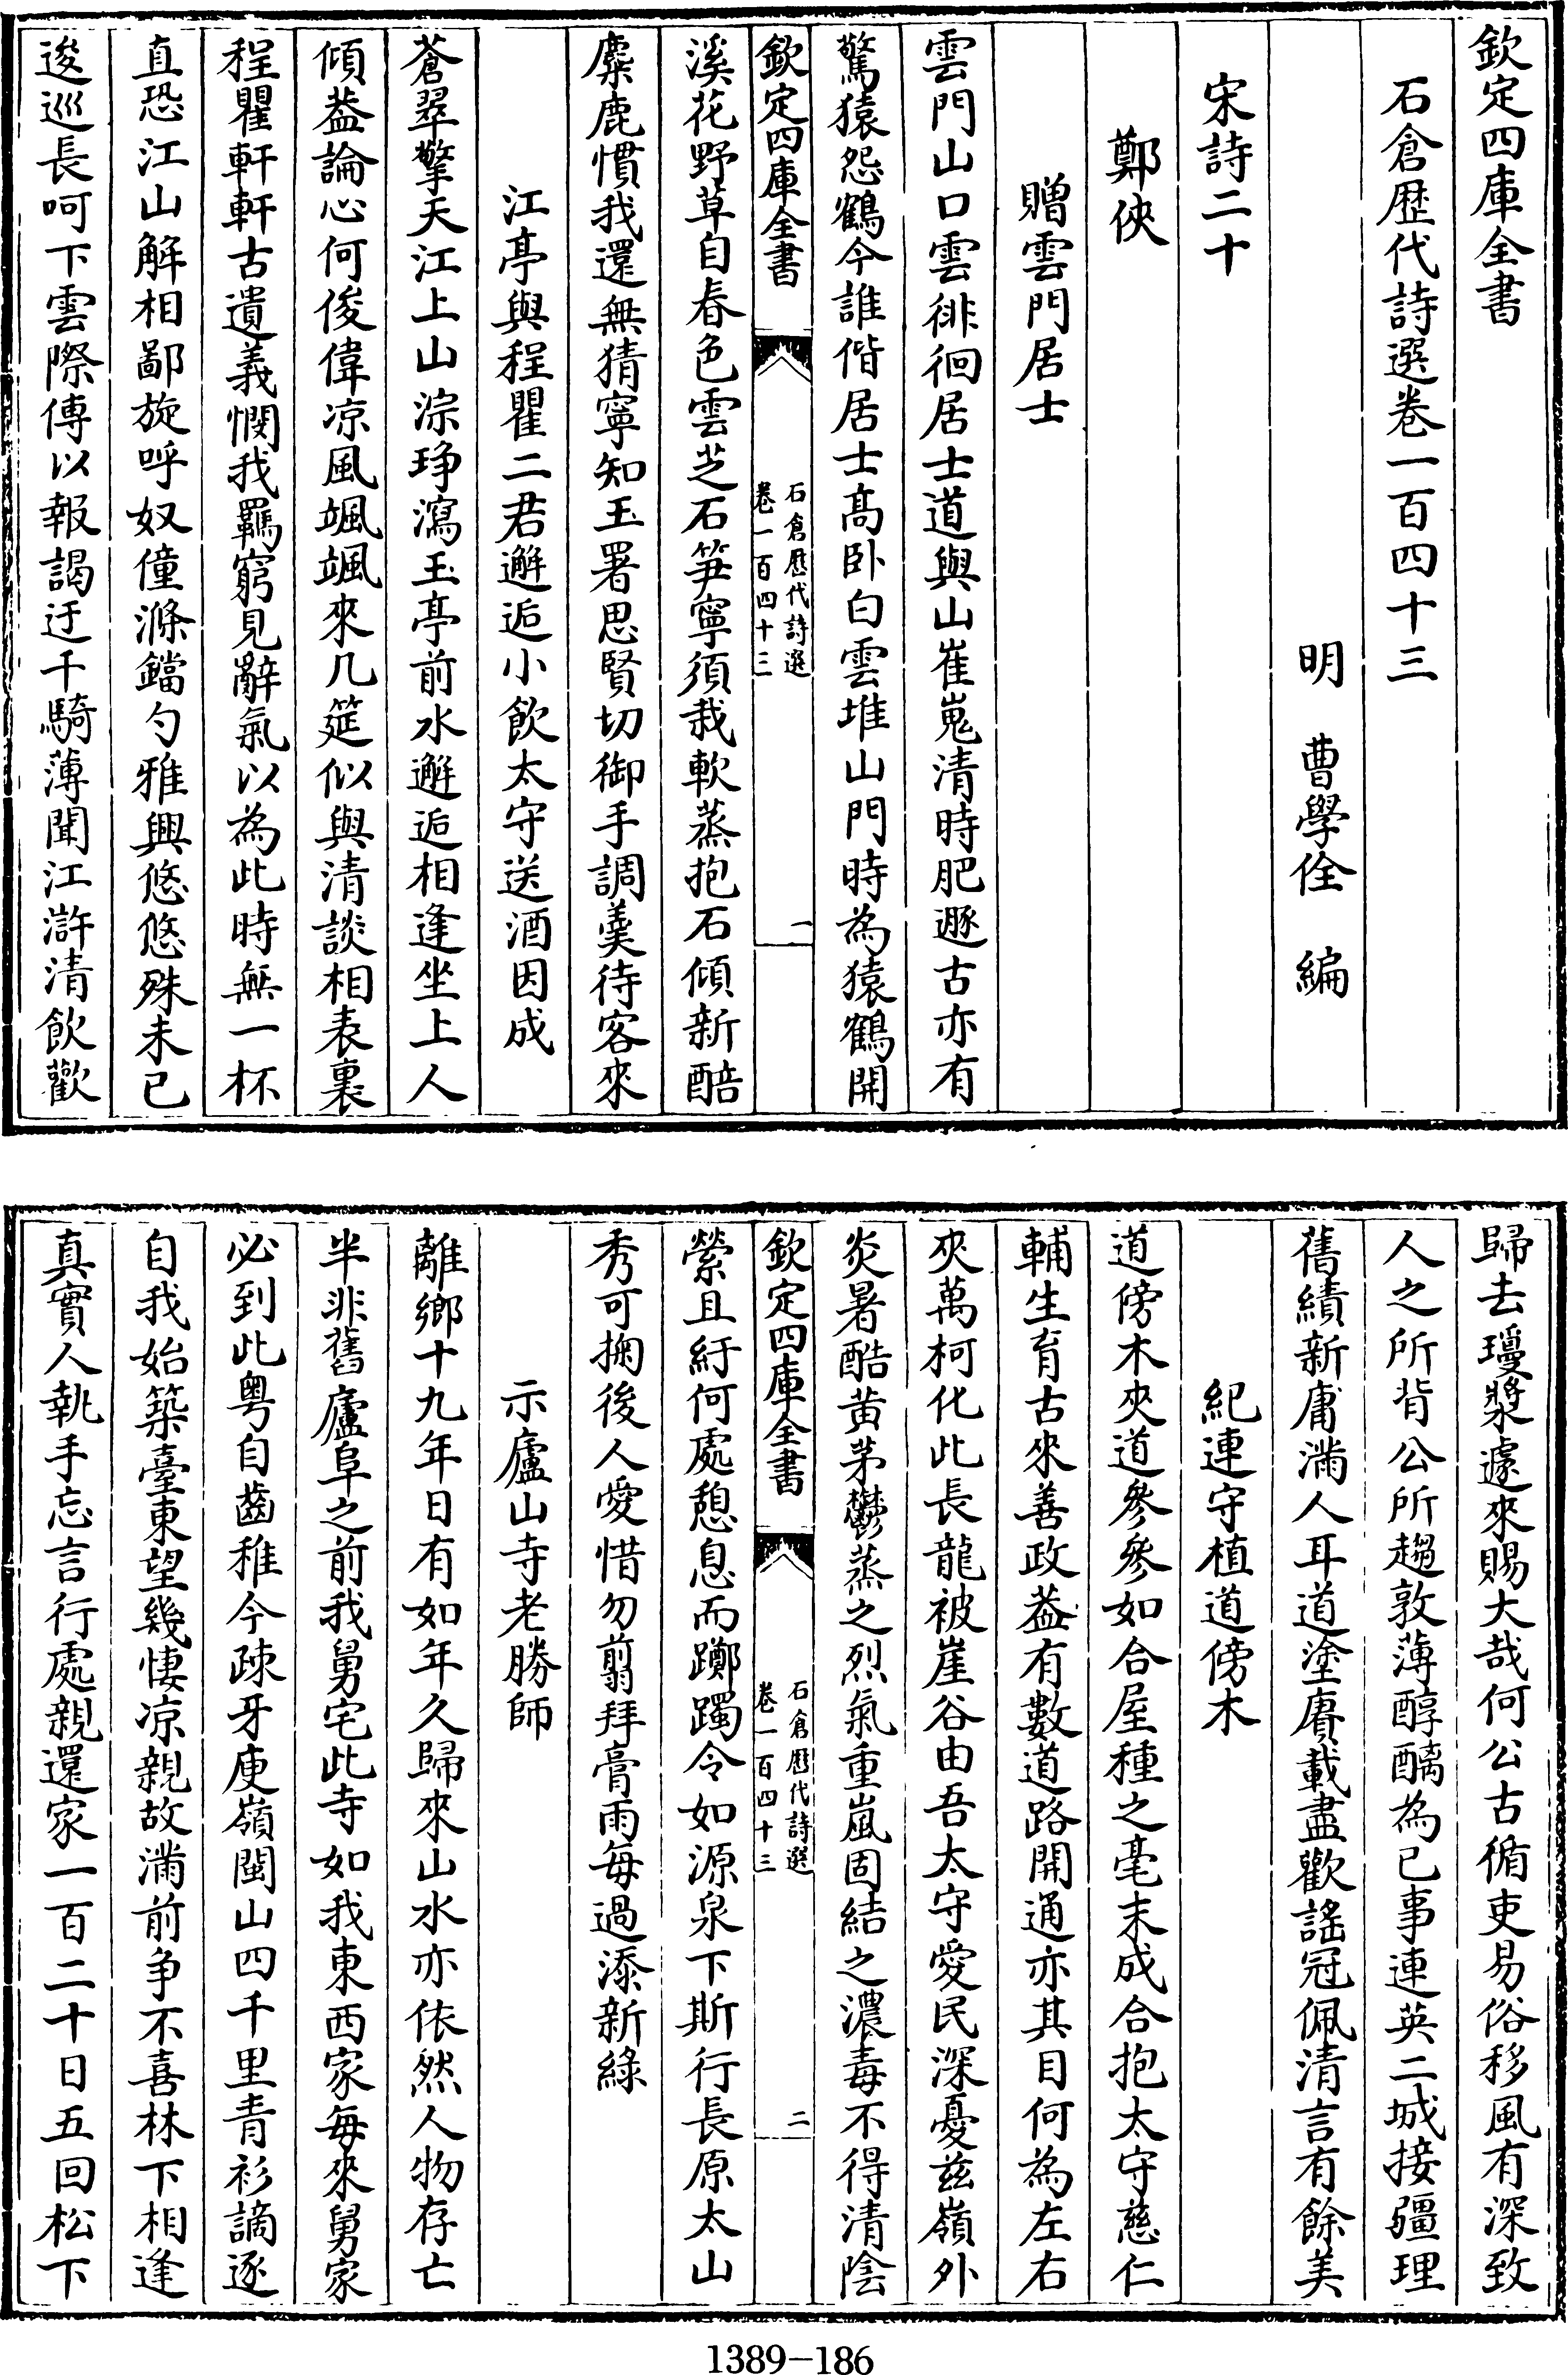 欽定四庫全書
石倉歴代詩選卷一百四十三
明　曹學佺　編
宋詩二十
鄭俠
贈雲門居士
雲門山口雲徘徊居士道與山崔嵬清時肥遯古亦有
驚猿怨鶴今誰偕居士髙卧白雲堆山門時為猿鶴開
欽定四庫全書
石倉歷代詩選
卷一百四十三
一
溪花野草自春色雲芝石笋寧須栽軟蒸抱石傾新醅
麋鹿慣我還無猜寧知玉署思賢切御手調羹待客來
江亭與程瞿二君邂逅小飲太守送酒因成
蒼翠擎天江上山淙琤瀉玉亭前水邂逅相逢坐上人
傾葢論心何俊偉凉風颯颯來几筵似與清談相表裏
程瞿軒軒古遺義憫我羈窮見辭氣以為此時無一杯
直恐江山解相鄙旋呼奴僮滌鐺勺雅興悠悠殊未已
逡巡長呵下雲際傳以報謁迂千騎薄聞江滸清飲歡
歸去瓊漿遽來賜大哉何公古循吏易俗移風有深致
人之所背公所趨敦薄醇醨為已事連英二城接疆理
舊績新庸滿人耳道塗賡載盡歡謠冠佩清言有餘美
紀連守植道傍木
道傍木夾道參參如合屋種之毫末成合抱太守慈仁
輔生育古來善政葢有數道路開通亦其目何為左右
夾萬柯化此長龍被崖谷由吾太守愛民深憂兹嶺外
炎暑酷黄茅鬱蒸之烈氣重嵐固結之濃毒不得清陰
欽定四庫全書
石倉歷代詩選
卷一百四十三
二
縈且紆何處憩息而躑躅令如源泉下斯行長原太山
秀可掬後人愛惜勿翦拜膏雨每過添新綠
示廬山寺老勝師
離鄉十九年日有如年久歸來山水亦依然人物存亡
半非舊廬阜之前我舅宅此寺如我東西家每來舅家
必到此粤自齒稚今疎牙庾嶺閩山四千里青衫謫逐
自我始築臺東望幾悽凉親故滿前争不喜林下相逢
真實人執手忘言行處親還家一百二十日五回松下
1389-186